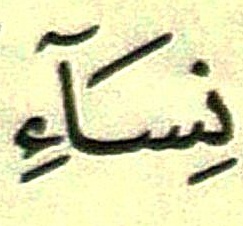 نِسَآءِ